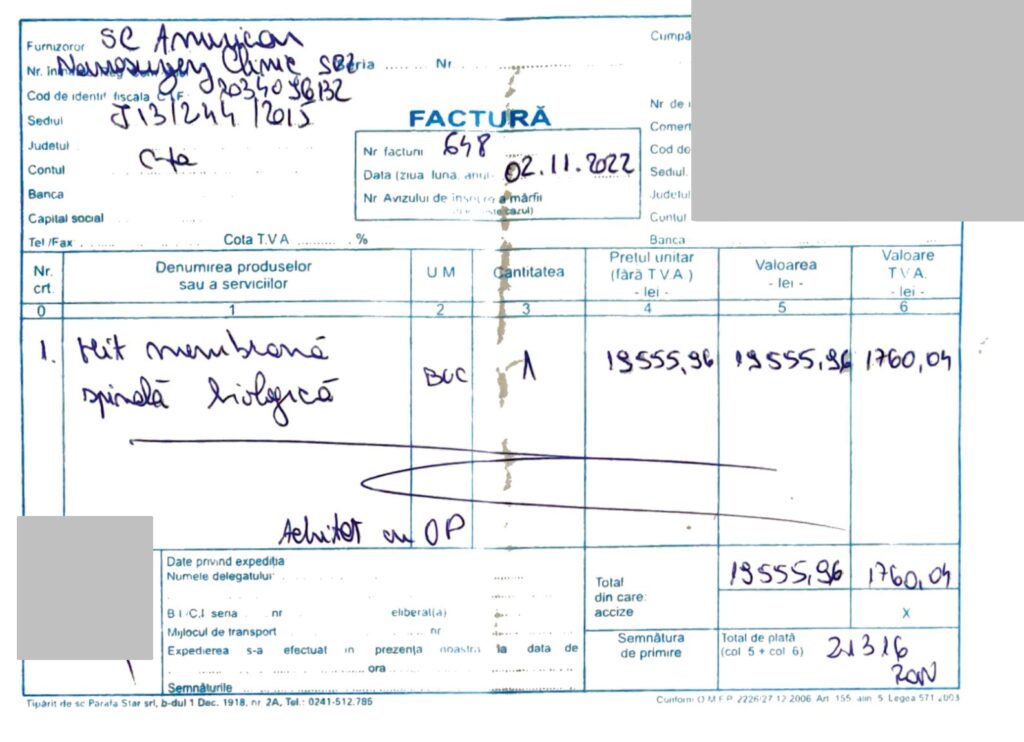 Furnizoror SC American
Nr. în Neurosurgery Clinic SRL
Seria ...... Nr
Cod de identif fiscala C I F 20340
Sediul J13/244/2015
Judetul
C-ța
Contul
Banca
Capital social
Tel /Fax
Cota T.V A .......... . %
FACTURĂ
Nr facturii 648
Data (ziua luna, anul 02.11.2022
Nr Avizului de însoțire a mărfii
(dacă este cazul)
Cumpă
Nr de
Comer
Cod de
Sediul.
Judetul
Contul
Banca
Nr. crt. Denumirea produselor sau a serviciilor U M Cantitatea Pretul unitar (fără T V A ) - lei - Valoarea - lei - Valoare T V A. - lei -
0 1 2 3 4 5 6
1. Kit membrană BUC 1 19555,96 19555,96 1760,04
spinală biologică
Achitat cu OP
Date privind expediția
Numele delegatului
B I /C.I seria nr eliberat(a)
Mijlocul de transport nr
Expedierea s-a efectuat in prezența noastra la data de
ora
Semnăturile
Total din care: accize 19555,96 1760,04
X
Semnătura de primire
Total de plată (col 5 + col 6) 21316 RON
Tipărit de sc Parafa Star srl, b-dul 1 Dec. 1918, nr 2A, Tel.: 0241-512.785
Conform O M F P 2226/27 12.2006 Art 155 alin 5 Legea 571 2003